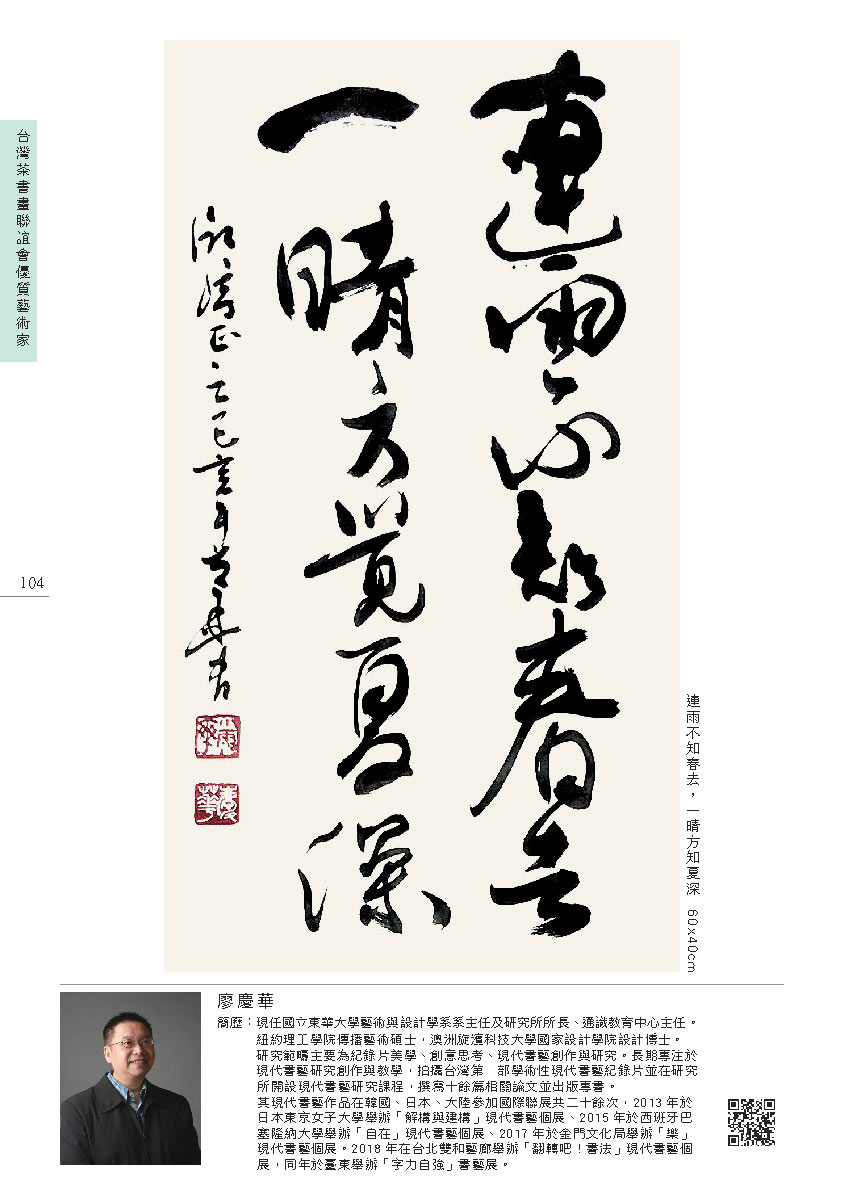 台灣茶書畫聯誼會優質藝術家
104
連雨不知春去
一晴方覺夏深
正之己亥年慶華書
連雨不知春去，一晴方知夏深 60x40cm
廖慶華
簡歷：現任國立東華大學藝術與設計學系系主任及研究所所長、通識教育中心主任。
紐約理工學院傳播藝術碩士，澳洲旋濱科技大學國家設計學院設計博士。
研究範疇主要為紀錄片美學、創意思考、現代書藝創作與研究。長期專注於
現代書藝研究創作與教學，拍攝台灣第 部學術性現代書藝紀錄片並在研究
所開設現代書藝研究課程，撰寫十餘篇相關論文並出版專書。
其現代書藝作品在韓國、日本、大陸參加國際聯展共二十餘次，2013 年於
日本東京女子大學舉辦「解構與建構」現代書藝個展、2015 年於西班牙巴
塞隆納大學舉辦「自在」現代書藝個展、2017 年於金門文化局舉辦「樂」
現代書藝個展。2018 年在台北雙和藝廊舉辦「翻轉吧！書法」現代書藝個
展，同年於臺東舉辦「字力自強」書藝展。